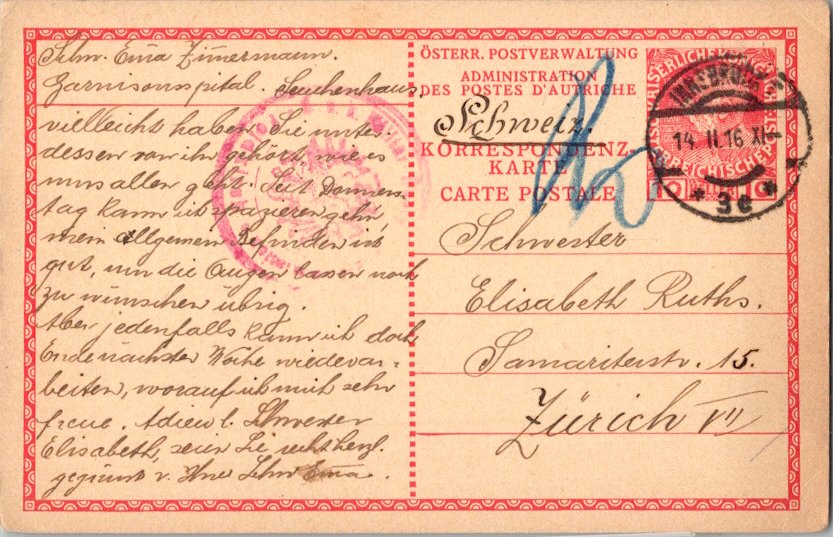 Schw. Ema Zimermann.
Garnisonsspital. Seuchenhaus.
vielleicht haben Sie unter-
dessen von ihr gehört, wie es
uns allen geht. Seit Donners-
tag kann ich spazieren gehn
mein allgemein Befinden ist
gut, nur die Augen lassen noch
zu wünschen übrig.
Aber jedenfalls kann ich doch
Ende nächster Woche wiederar-
beiten, worauf ich mich sehr
freue. Adieu l. Schwester
Elisabeth, seien Sie recht herzl.
gegrüsst v. Ihrer Schw Ema.
ÖSTERR. POSTVERWALTUNG
ADMINISTRATION
DES POSTES D'AUTRICHE
Schweiz.
KORRESPONDENZ-
KARTE
CARTE POSTALE
INNSBRUCK
14 II 16 XII
* 3e *
10
Schwester
Elisabeth Ruths.
Samariterstr. 15.
Zürich VII